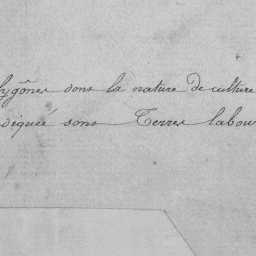 lygônes dont la nature De culture
diquée sont Terres labou